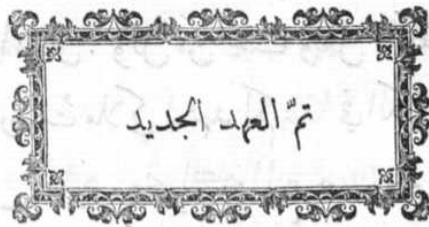 تمّ العهد الجديد